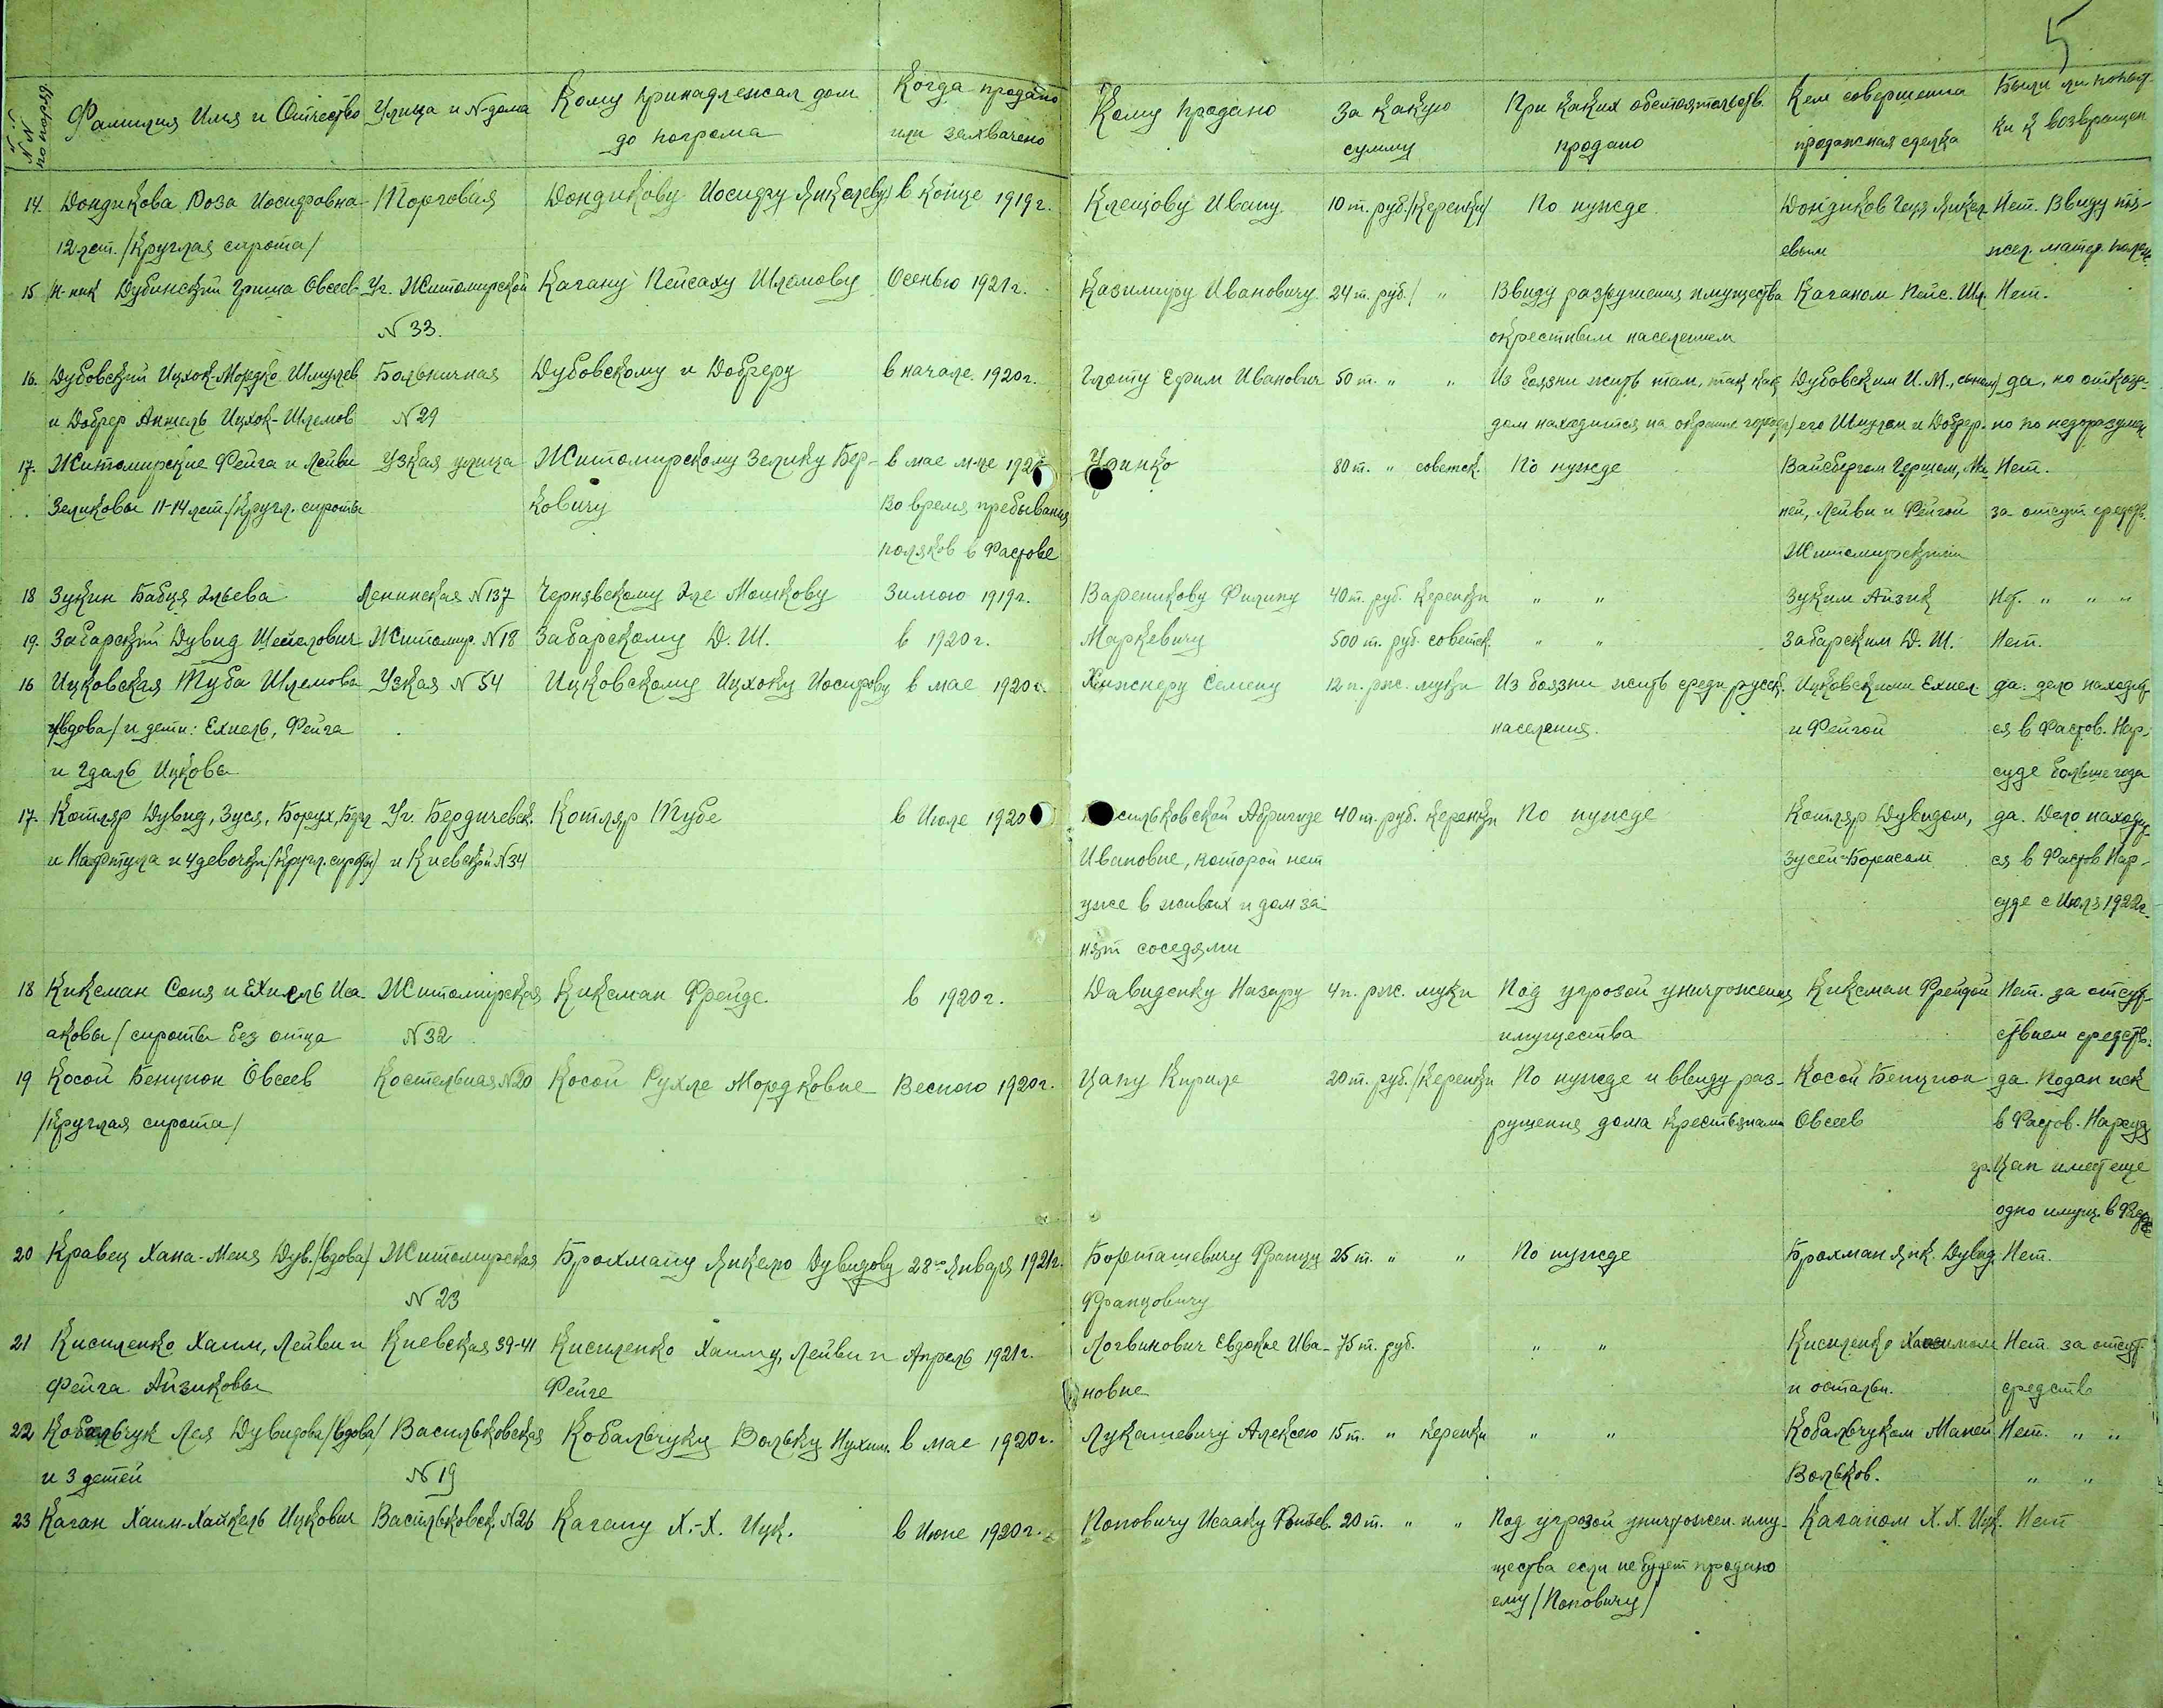 5
№№ по порядку | Фамилия Имя и Отчество | Улица и №дома | Кому принадлежал дом до погрома | Когда продано или захвачено | Кому продано | За какую сумму | При каких обстоятельств. продано | Кем совершена продажная сделка | Были ли попыт-ки к возвращен
14. Дондикова Роза Иосифовна | Торговая | Дондикову Иосифу Янкелеву | в конце 1919г. | Клещову Ивану | 10 т. руб. /керенки/ | По нужде | Дондиков Янкел | Нет. Ввиду тя-
12 лет. /Круглая сирота/ | евым | жел. матер. полож.
15 Н-ник Дубинский Гриша Овсеев. | Уг. Житомирской | Кагану Пейсаху Шлемову | Осенью 1921г. | Казимиру Ивановичу | 24 т. руб. / " | Ввиду разрушения имущества | Каганом Пейс. Шл. | Нет.
№ 33. | окрестным населением
16. Дубовский Ицхок-Мордко Шмулев | Больничная | Дубовскому и Добреру | в начале 1920г. | Глоту Ефим Иванович | 50 т. " " | Из боязни жить там, так как | Дубовским И. М., сыном | да, но отказа-
и Добрер Анжель Ицхок-Шлемов | № 29 | дом находится на окраине города | его Шмулем и Добрер. | но по недоразумен
17. Житомирские Фейга и Лейви | Узкая улица | Житомирскому Зелику Бер- | в мае м-це 192 | Уринко | 80 т. " советск. | По нужде | Вайсбергом Гершом, Ми- | Нет.
Зеликовы 11-14 лет. /Кругл. сироты | ковичу | Во время пребывания | ней, Лейви и Фейгой | за отсут. средств.
поляков в Фастове | Житомирскими
18 Зукин Бабця Эльева | Ленинская №137 | Чернявскому Эле Мошкову | Зимою 1919г. | Вареникову Филипу | 40 т. руб. керенки | " " | Зуким Айзик | " " "
19. Забарский Дувид Шепелович | Житомир. №18 | Забарскому Д. Ш. | в 1920г. | Маркевичу | 500 т. руб. советск. | " " | Забарским Д. Ш. | Нет.
16 Ицковская Туба Шлемова | Узкая № 54 | Ицковскому Ицхоку Иосифову | в мае 1920г. | Хижнеру Семену | 12 п. рж. муки | Из боязни жить среди русск. | Ицковскими Ехиел. | да. дело находит-
/вдова/ и дети: Ехиель, Фейга | населения. | и Фейгой | ся в Фастов. Нар-
и Гдаль Ицковы | суде больше года
17. Котляр Дувид, Зуся, Борух, | Уг. Бердичевск. | Котляр Тубе | в Июле 1920 | сильковской Ивановне | 40 т. руб. керенки | По нужде | Котляр Дувидом, | да. Дело находит-
и Нафтула и 4 девочки /Кругл. сироты/ | и Киевской №34 | Ивановне, которой нет | Зусей-Борисом | ся в Фастов Нар-
уже в живых и дом за- | суде с Июля 1922г.
нят соседями
18 Киксман Соня и Ехиель Иса- | Житомирская | Киксман Фрейде. | в 1920г. | Давиденку Назару | 4 п. рж. муки | Под угрозой уничтожения | Киксман Фрейдой | Нет. за отсут-
аковы /сироты без отца | № 32 | имущества | ствием средств.
19 Косой Бенцион Овсеев | Костельная №20 | Косой Рухле Мордковне | Весною 1920г. | Цапу Кириле | 20 т. руб. /керенки | По нужде и ввиду раз- | Косой Бенцион | да. Подан иск
/Круглая сирота/ | рушения дома крестьянами | Овсеев | в Фастов. Нарсуд
гр. Цап имеет еще
одно имущ. в Фаст
20 Кравец Хана-Меня Дув. /вдова/ | Житомирская | Брохману Янкелю Дувидову | 28го Января 1921г. | Борташевичу Францу | 25 т. " " | По нужде | Брохман Янк. Дувид. | Нет.
№ 23 | Францовичу
21 Кисиленко Хаим, Лейви и | Киевская 39-41 | Кисиленко Хаиму, Лейви и | Апрель 1921г. | Логвинович Евдокие Ива- | 75 т. руб. | " " | Кисиленко Хаимом | Нет за отсут.
Фейга Айзиковы | Фейге | новне | и остальн. | средств
22 Кобальчук Лея Дувидова /вдова/ | Васильковская | Кобальчуку Вольку Нухим. | в мае 1920г. | Лукашевичу Алексею | 15 т. " керенки | " " | Кобальчуком Маней | Нет. " "
и 3 детей | № 19 | Вольков. | " "
23 Каган Хаим-Хайкель Ицкович | Васильковск. №26 | Кагану Х.-Х. Ицк. | в Июне 1920г. | Поповичу Исааку | 20 т. " " | Под угрозой уничтожен. иму- | Каганом Х. Х. Ицк. | Нет
щества если не будет продано
ему /Поповичу/